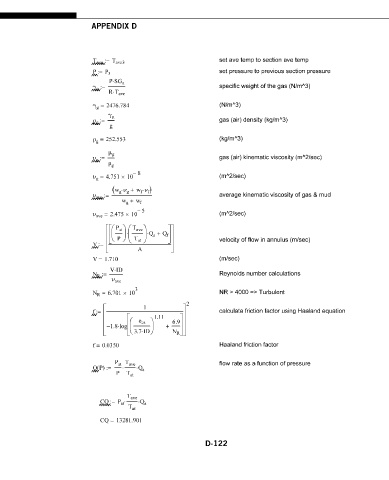 APPENDIX D
T_ave := T_aves6 set ave temp to section ave temp
P := P_5 set pressure to previous section pressure
γ_g := P·SG_s / R·T_ave specific weight of the gas (N/m^3)
γ_g = 2476.784 (N/m^3)
ρ_g := γ_g / g gas (air) density (kg/m^3)
ρ_g = 252.553 (kg/m^3)
ν_g := μ_g / ρ_g gas (air) kinematic viscosity (m^2/sec)
ν_g = 4.751 × 10^-8 (m^2/sec)
ν_ave := (w_g·ν_g + w_f·ν_f) / w_g + w_f average kinematic viscosity of gas & mud
ν_ave = 2.475 × 10^-5 (m^2/sec)
V := [[(P_at / P)·(T_ave / T_at)·Q_s + Q_f] / A] velocity of flow in annulus (m/sec)
V = 1.710 (m/sec)
N_R := V·ID / ν_ave Reynolds number calculations
N_R = 6.701 × 10^3 NR > 4000 => Turbulent
f := [1 / -1.8·log[(e_ca / 3.7·ID)^1.11 + 6.9 / N_R]]^2 calculate friction factor using Haaland equation
f = 0.0350 Haaland friction factor
Q(P) := P_at / P · T_ave / T_at ·Q_s flow rate as a function of pressure
CQ := P_at· T_ave / T_at ·Q_s
CQ = 13281.901
D-122